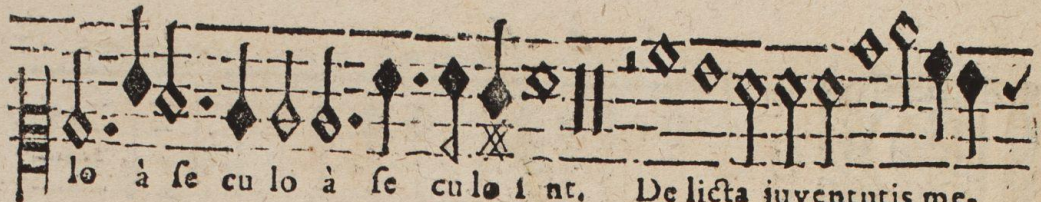 lo à se cu lo à se cu lo i nt. Delicta juventutis me-